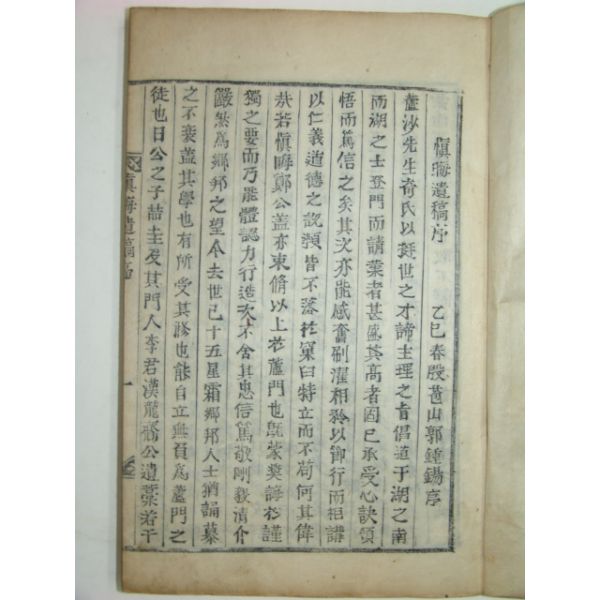 愼晦遺稿序
乙巳春殷菑山郭鍾錫序
蘆沙先生奇氏以挺世之才諦主理之旨倡道于湖之南
而湖之士登門而請業者甚盛其高者固已承受心訣領
悟而篤信之矣其次亦能感奮刷濯相矜以御行而相講
以仁義道德之說類皆不落於窠臼特立而不苟何其偉
哉若愼晦鄭公蓋亦束脩以上於蘆門也旣蒙奬誨於謹
獨之要而乃能體認力行造次不舍其忠信篤敬剛毅清介
嚴然爲鄕邦之望今去世已十五星霜鄕邦人士猶誦慕
之不衰蓋其學也有所受其形也能自立無負爲蘆門之
徒也日公之子喆圭及其門人李君漢龍齎公遺藁若干
愼晦遺稿序
一